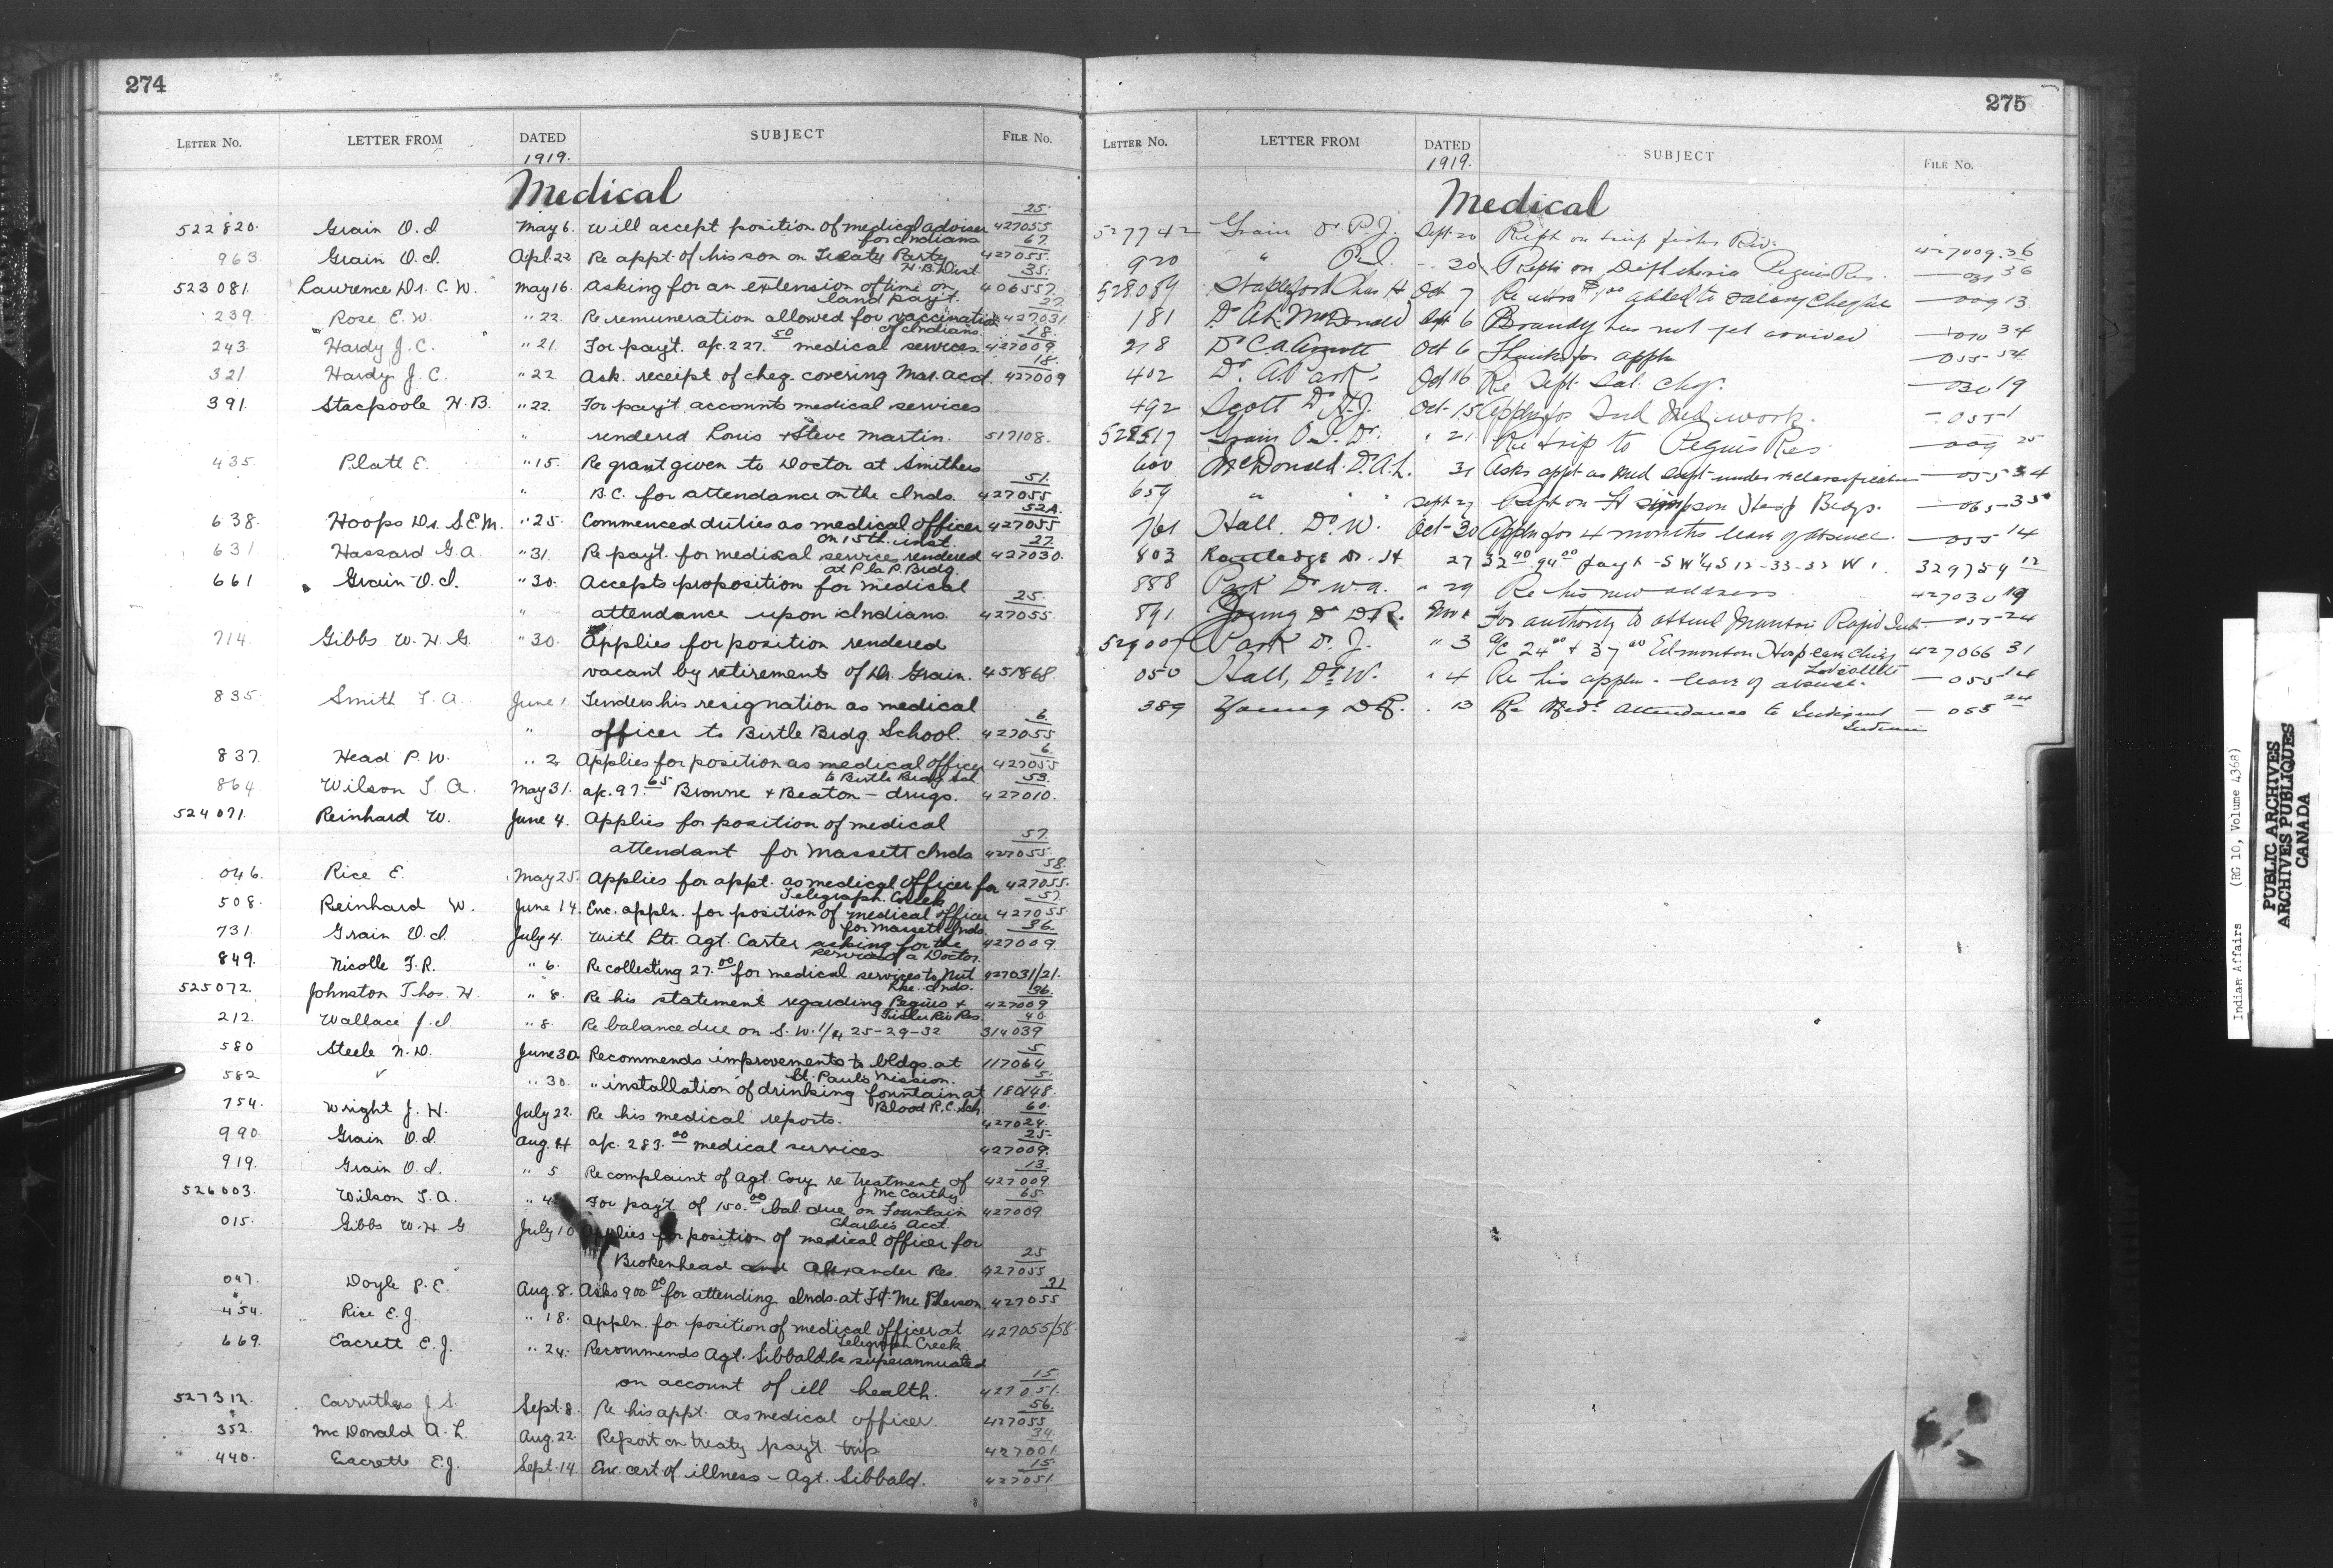 274
LETTER No. LETTER FROM DATED SUBJECT FILE No.
1919.
Medical
522820. Grain O.I. May 6. Will accept position of medical adviser for Indians 427055 25
963. Grain O.I. Apl. 22 Re appt. of his son on Treaty Party 427055 67
523081. Lawrence Dr. C.W. May 16. Asking for an extension of time on land pay't. 406557 35
239. Rose E.W. " 22. Re remuneration allowed for vaccination of Indians 427031
243. Hardy J.C. " 21. For pay't. a/c. 227.50 medical services. 427009 18.
321. Hardy J.C. " 22 Ask. receipt of cheq. covering Mar. acct. 427009 18.
391. Stacpoole H.B. " 22. For pay't. accounts medical services
" rendered Louis & Steve Martin. 517108.
435. Platt E. " 15. Re grant given to Doctor at Smithers
" B.C. for attendance on the Inds. 427055 51.
638. Hoops Dr. S.E.M. " 25. Commenced duties as medical officer on 15th inst. 427055 52A.
631. Hassard G.A. " 31. Re pay't. for medical service rendered at P la P. Brdg. 427030. 27.
661 Grain O.I. " 30. Accepts proposition for medical
" attendance upon Indians. 427055 25.
714. Gibbs W.H.G. " 30. Applies for position rendered
vacant by retirement of Dr. Grain. 451868.
835. Smith T.A. June 1. Tenders his resignation as medical
" officer to Birtle Brdg. School. 427055 6.
837. Head P.W. " 2 Applies for position as medical officer to Birtle Brdg Sch 427055 6.
864. Wilson T.A. May 31. a/c. 97.65 Browne & Beaton - drugs. 427010. 53.
524071. Reinhard W. June 4. Applies for position of medical
attendant for Massett Inds 427055. 57.
046. Rice E. May 25. Applies for appt. as medical officer for Telegraph Creek 427055. 58.
508. Reinhard W. June 14. Enc. appln. for position of medical officer for Massett Inds. 427055 57.
731. Grain O.I. July 4. With ltr. Agt. Carter asking for the services of a Doctor. 427009. 36.
849. Nicolle F.R. " 6. Re collecting 27.00 for medical services to Nut Lke. Inds. 427031/21.
525072. Johnston Thos. H. " 8. Re his statement regarding Peguis & Fisher Riv Res. 427009 36.
212. Wallace J.I. " 8. Re balance due on S.W. 1/4 25-29-32 314039 40
580 Steele N.D. June 30 Recommends improvements to bldgs. at St. Pauls Mission. 117064 5
582 " " 30. " installation of drinking fountain at Blood R.C. Sch. 180148. 5.
754. Wright J.H. July 22. Re his medical reports. 427024. 60.
990 Grain O.I. Aug. 4 a/c. 283.00 medical services 427009. 25.
919. Grain O.I. " 5. Re complaint of Agt. Cory re treatment of J. McCarthy. 427009 13.
526003. Wilson T.A. " 4 For pay't. of 150.00 bal. due on Fountain Charlie's Acct. 427009 65.
015. Gibbs W.H.G. July 10 Applies for position of medical officer for
Brokenhead and Alexander Res. 427055 25
047. Doyle P.E. Aug. 8. Asks 900.00 for attending Inds. at Ft. Mc Pherson. 427055 31
454. Rice E.J. " 18. Appln. for position of medical officer at Telegraph Creek 427055/58.
669. Eacrett E.J. " 24. Recommends Agt. Sibbald be superannuated
on account of ill health. 427051. 15
527312. Carruthers J.S. Sept. 8. Re his appt. as medical officer. 427055 56.
352. Mc Donald A.L. Aug. 22. Report on treaty pay't. trip 427001. 34.
440. Eacrett E.J. Sept. 14. Enc. cert of illness - Agt. Sibbald. 427051 15.
275
LETTER No. LETTER FROM DATED SUBJECT FILE No.
1919.
Medical
527742 Grain Dr. Sept 20 Rept on trip fisher Riv. 427009.36
920 " 30 Repts on Diphtheria Peguis Res. 36
528089 Stapleford Chas H Oct 7 Re extra added to salary cheque - 009 13
181 Dr. A.L. McDonald Sept 6 Brandy has not yet arrived 34
218 Dr. C.A. Oct 6 Thanks for appln - 055 54
402 Dr. Park Oct 16 Re Sept. Sal. chq. - 030 19
492 Scott Dr. Oct 15 Appln for Ind Med work. - 055 1
528517 Grain Dr. " 21 Re trip to Peguis Res - 009 25
600 McDonald. Dr. A.L. 31 Asks appt as Med Supt under reclassification - 055 34
659 " " Sept 27 Rept on Ft Simpson Hosp Bldgs. - 065 - 35
761 Hall. Dr. W. Oct 30 Appln for 4 months leave of absence. - 055 14
803 Routledge Dr. H 27 32.40 94.00 pay't - S W 1/4 S 12 - 33 - 32 W 1. 329759 12
888 Park Dr. W.A. " 29 Re his new address 427030 19
891 Young Dr. D.R. For authority to attend Rapid Inds. - 055 24
529007 Park Dr. J. " 3 a/c 24.00 + 37.00 Edmonton Hosp 427066 31
050 Hall, Dr. W. " 4 Re his appln - leave of absence. - 055 14
389 Young D.R. " 13 Re Med. attendance to Indigent Indians - 055 24
Indian Affairs (RG 10, Volume 4368)
PUBLIC ARCHIVES
ARCHIVES PUBLIQUES
CANADA